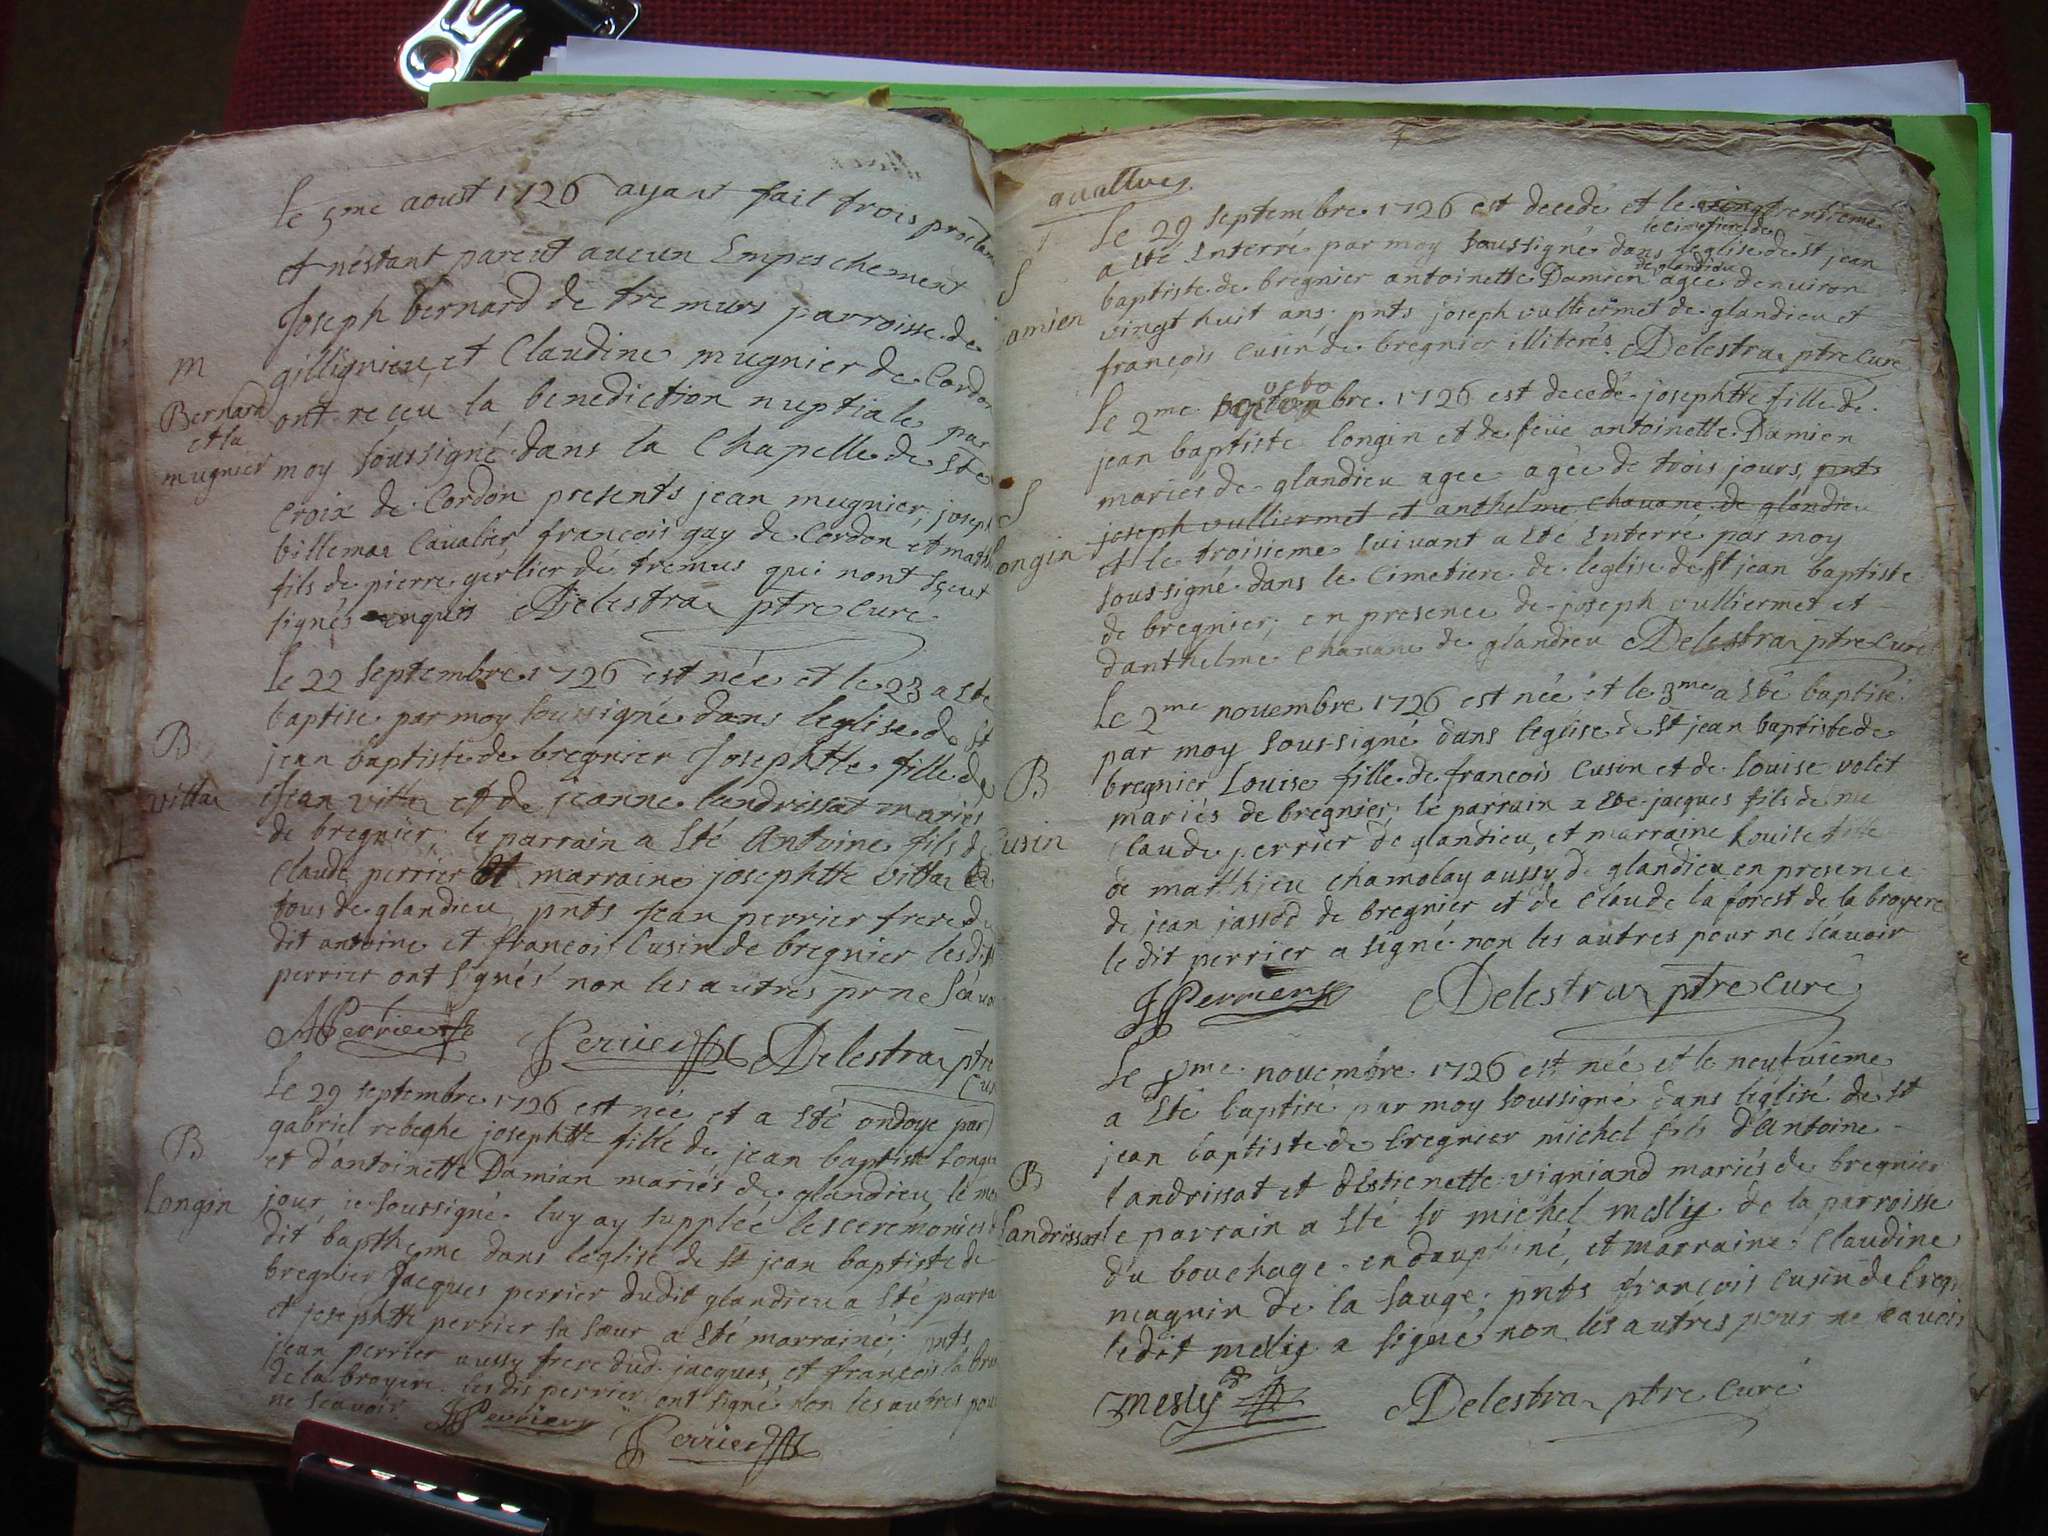 le 5me aoust 1726 ayant fait trois proclam
et nestant parent aucun Empeschement
Joseph bernard de tremurs parroisse de
gillignieu et Claudine mugnier de Cordon
ont receu la benediction nuptiale par
moy soussigné dans la Chapelle de Ste
Croix de Cordon presents jean mugnier, joseph
villemar Cavalier, francois gay de Cordon et math
fils de pierre gerlier de tremurs qui nont sçeut
signés enquis Delestra ptre curé
m
Bernard
et la
mugnier
le 22 septembre 1726 est née et le 23 a Eté
baptise par moy soussigné dans leglise de St
jean baptiste de bregnier Josephtte fille de
Jean vittaz et de jeanne landrissat mariés
de bregnier, le parrain a Eté Antoine fils de
Claude perrier et marraine josephtte vittaz
tous de glandieu pnts jean perrier frere du
dit antoine et francois Cusin de bregnier lesdits
perrier ont signés non les autres pr ne scavoi
B
vittaz
APerrier
JPerrier Delestra ptre
cur
le 29 septembre 1726 est née et a Eté ondoye par
gabriel rebeghe josephtte fille de jean baptiste longin
et d'antoinette Damian mariés de glandieu, le me
jour, ie soussigné luy ay supplée les ceremonies
dit baptheme dans leglise de St jean baptiste de
bregnier Jacques perrier dudit glandieu a Eté parra
et josephtte perrier sa sœur a Eté marraine; pnts
jean perrier aussy frere dud. jacques, et francois la bru
de la broyere les dis perrier ont signé non les autres pour
ne scavoir
B
Longin
JPerrier
JPerrier
quattres
Le 29 septembre 1726 est decedé et le trentieme
le cimetiere de
a Eté Enterré par moy soussigné dans leglise de St jean
de glandieu
baptiste de bregnier antoinette Damien agée denuiron
vingt huit ans pnts joseph vulliermet de glandieu et
françois Cusin de bregnier illiterés Delestra ptre Curé
S
amien
octo
le 2me septembre 1726 est decedé josephtte fille de
jean baptiste longin et de feüe antoinette Damien
mariés de glandieu agee agée de trois jours, pnts
joseph vulliermet et anthelme chavane de glandieu
et le troisieme suivant a Eté Enterré par moy
soussigné dans le Cimetiere de leglise de St jean baptiste
de bregnier, en presence de joseph vulliermet et
danthelme Chavane de glandieu Delestra ptre Curé
S
longin
Le 2me novembre 1726 est née et le 3me a Eté baptisé
par moy soussigné dans leglise de St jean baptiste de
bregnier Louise fille de francois Cusin et de louise volet
mariés de bregnier, le parrain a Eté jacques fils de
Claude perrier de glandieu, et marraine Louise fille
de matthieu chamolay aussy de glandieu en presence
de jean jassod de bregnier et de Claude la forest de la broyere
le dit perrier a signé non les autres pour ne scavoir
B
Cusin
JPerrier Delestra ptre curé
Le 8me novembre 1726 est née et le neufvieme
a Eté baptisé par moy soussigné dans leglise de St
jean baptiste de bregnier michel fils d'Antoine
landrissat et dEstienette vigniand mariés de bregnier
le parrain a Eté sr michel mesly de la parroisse
du bouchage en dauphiné, et marraine Claudine
magnin de la sauge; pnts françois Cusin de bregn
ledit mesly a signé non les autres pour ne scavoir
B
landrissat
Mesly Delestra ptre curé